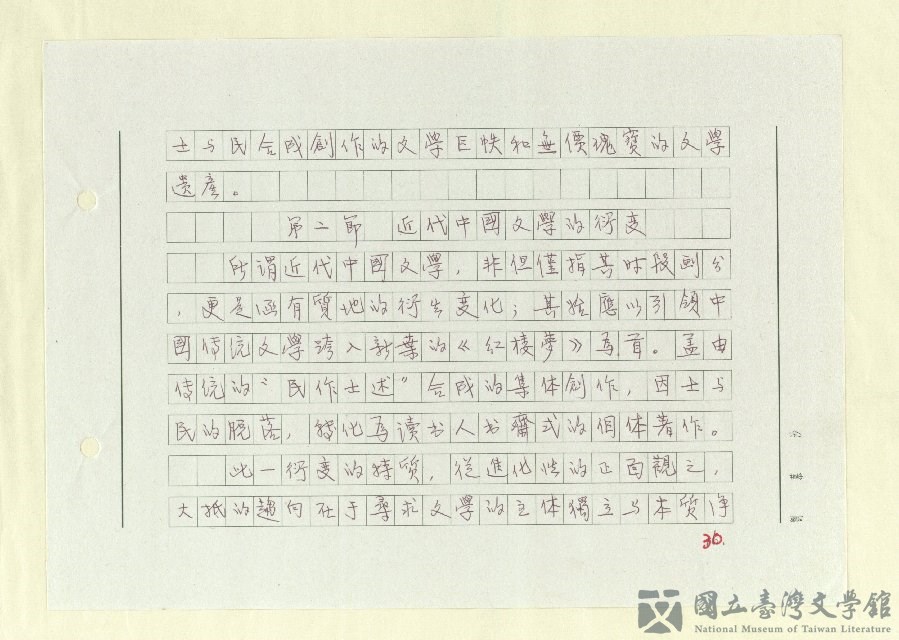 士与民合成創作的文學巨帙和無價瑰寶的文學
遺產。
第二節 近代中國文學的衍变
所谓近代中國文學，非但僅指其时段劃分
，更是涵有質地的衍生变化；其始應以引領中
國传统文學跨入新葉的《红楼夢》為首。盖由
传统的“民作士述”合成的集体創作，因士与
民的脱落，轉化為读书人书齋式的個体著作。
此一衍变的特質，從進化性的正面觀之，
大抵的趨向在于尋求文學的主体獨立与本質淨
30.
國立臺灣文學館
National Museum of Taiwan Literature